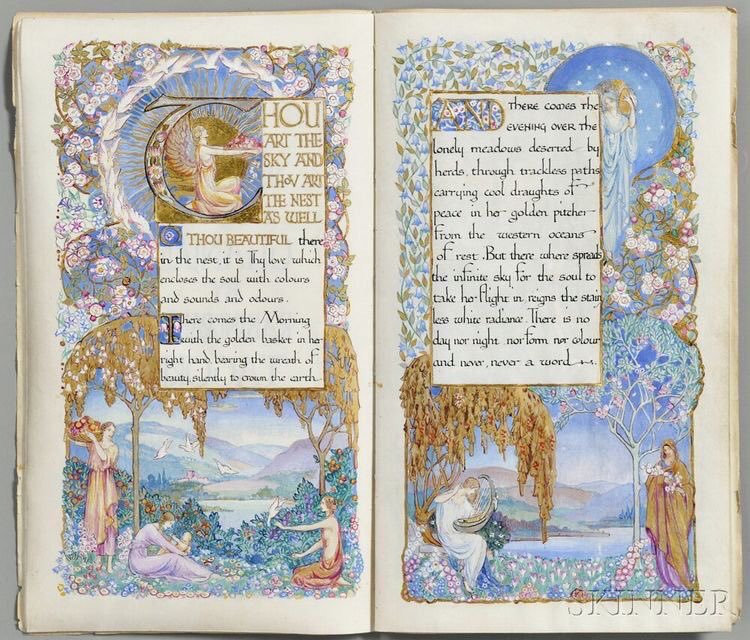 THOU
ART THE
SKY AND
THOV ART
THE NEST
AS WELL
O THOU BEAUTIFUL there
in the nest, it is Thy love which
encloses the soul with colours
and sounds and odours.
There comes the Morning
with the golden basket in her
right hand bearing the wreath of
beauty, silently to crown the earth
AND THERE COMES THE
EVENING OVER THE
lonely meadows deserted by
herds, through trackless paths
carrying cool draughts of
peace in her golden pitcher
from the western oceans
of rest. But there where spreads
the infinite sky for the soul to
take her flight in reigns the stain
less white radiance. There is no
day nor night nor form nor colour
and never, never a word
SKINNER